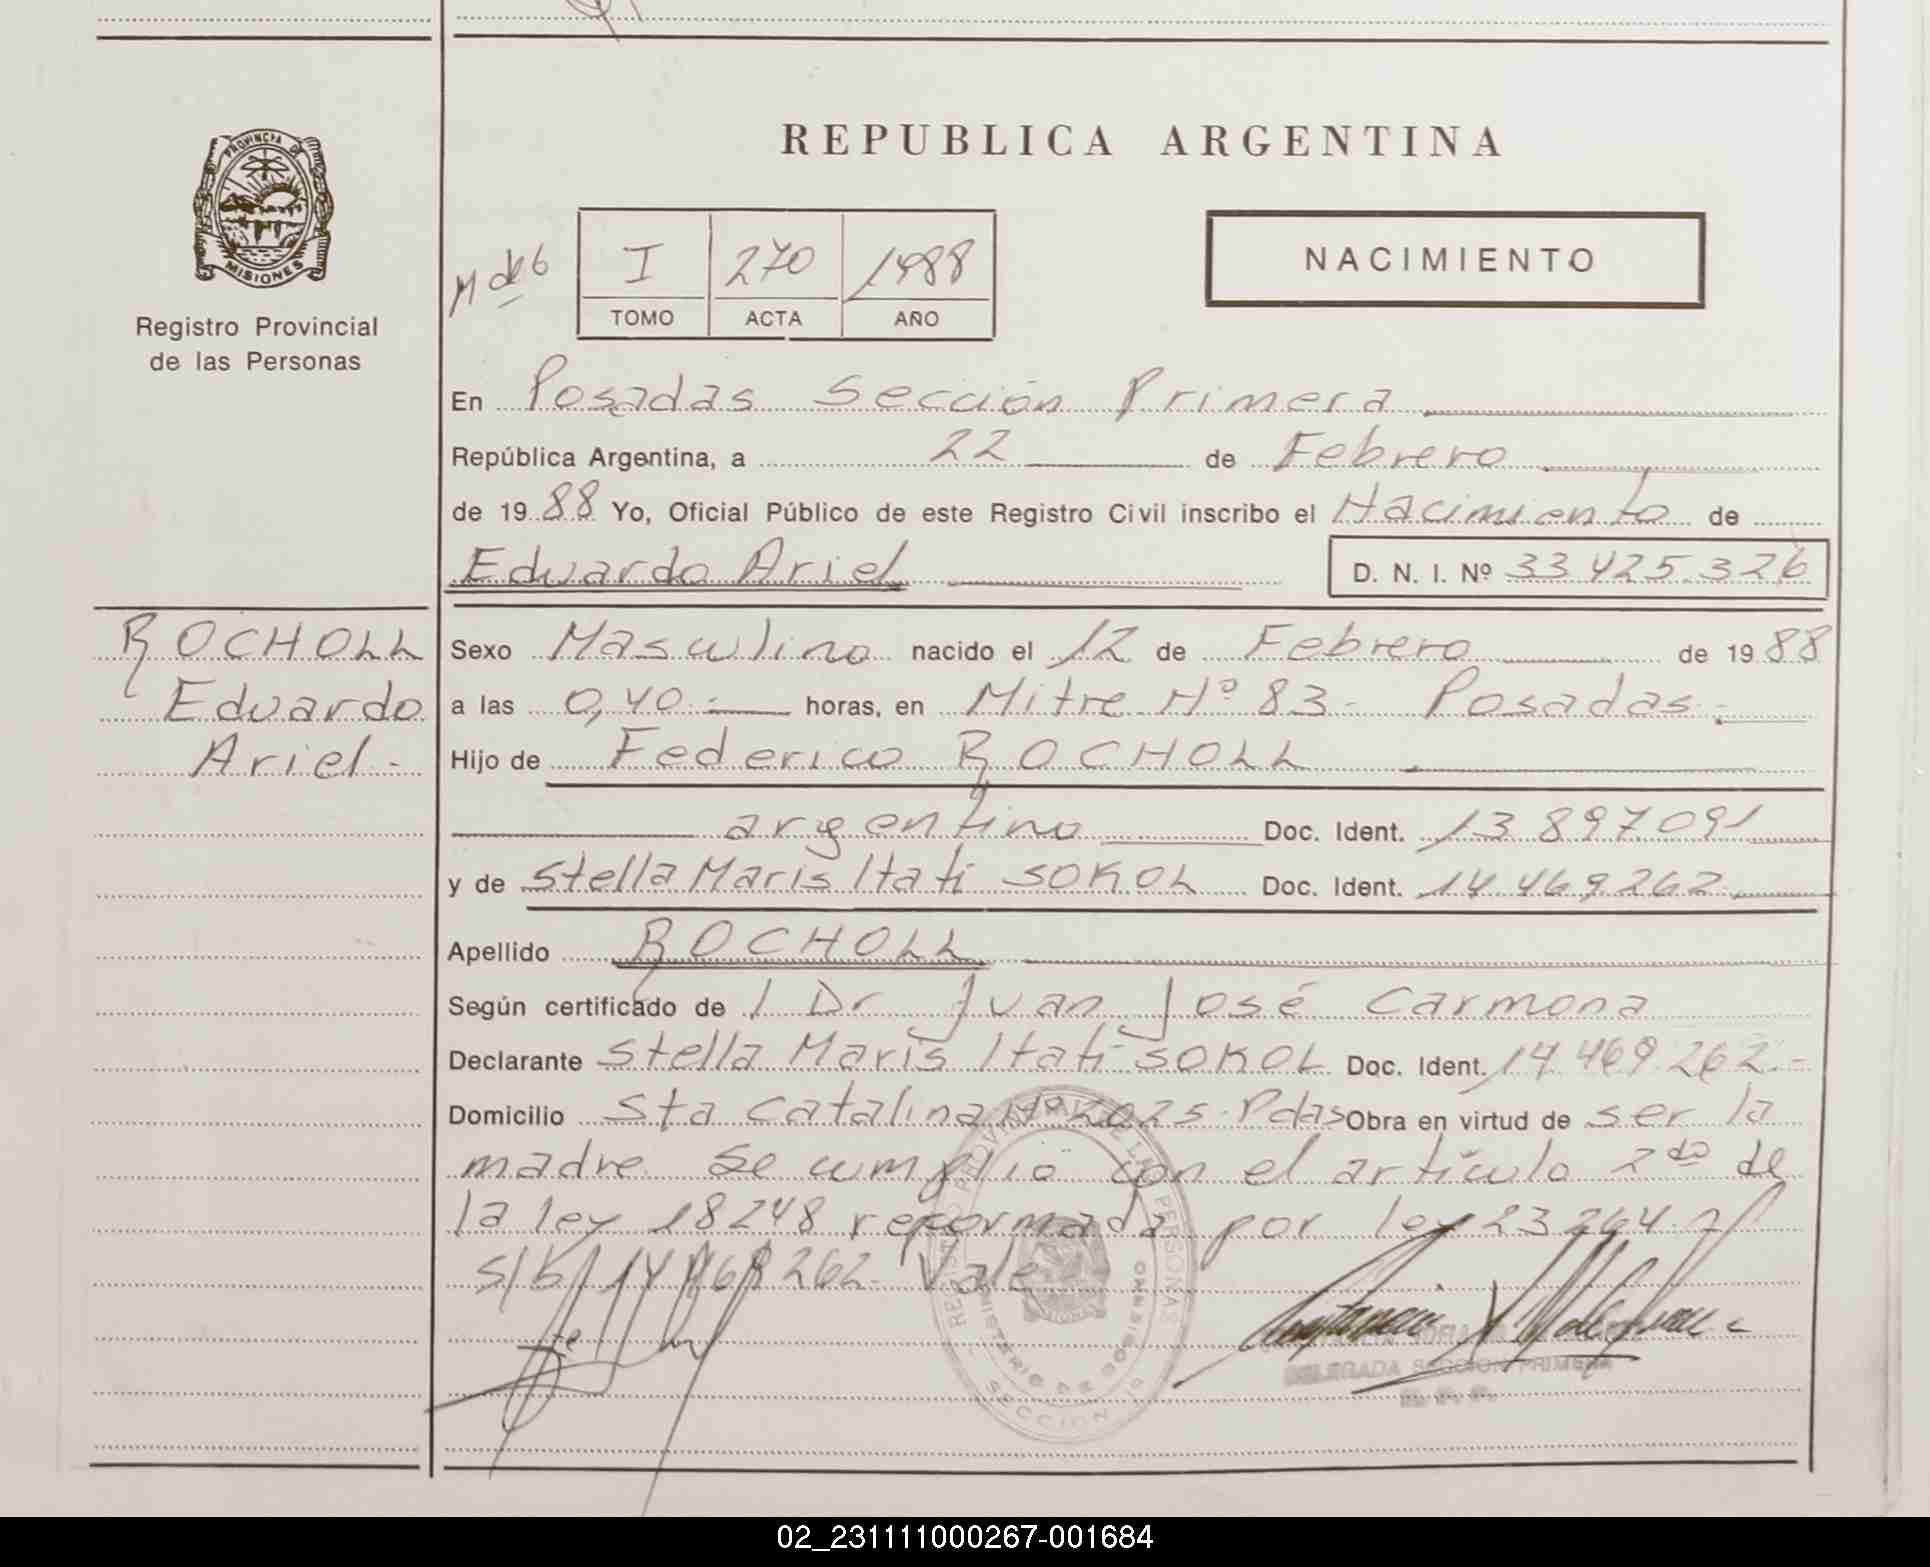 PROVINCIA DE
MISIONES
Registro Provincial
de las Personas
REPUBLICA ARGENTINA
M de 6
I 270 1988
TOMO ACTA AÑO
NACIMIENTO
En Posadas Sección Primera
República Argentina, a 22 de Febrero
de 1988 Yo, Oficial Público de este Registro Civil inscribo el Nacimiento de
Eduardo Ariel D. N. I. Nº 33.425.326
ROCHOLL
Eduardo
Ariel.-
Sexo Masculino nacido el 12 de Febrero de 1988
a las 0,40.- horas, en Mitre Nº 83- Posadas.-
Hijo de Federico ROCHOLL
argentino Doc. Ident. 13.897.091
y de Stella Maris Itatí SOKOL Doc. Ident. 14.469.262
Apellido ROCHOLL
Según certificado de l Dr Juan José Carmona
Declarante Stella Maris Itatí SOKOL Doc. Ident. 14.469.262.-
Domicilio Sta Catalina Nº 2025. Pdas Obra en virtud de ser la
madre. Se cumplió con el artículo 2do de
la ley 18248 reformada por ley 23264
s/b/ 14.469.262- Vale
REGISTRO PROVINCIAL DE LAS PERSONAS
MINISTERIO DE GOBIERNO
SECCION
DELEGADA SECCION PRIMERA
02_231111000267-001684